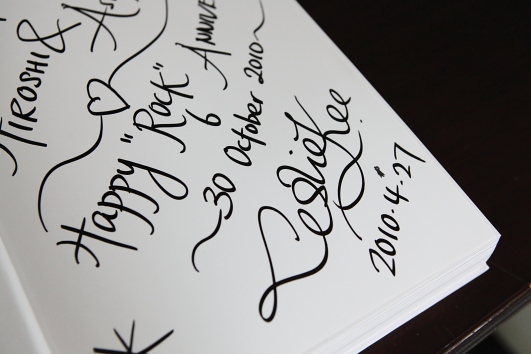 HIROSHI & AS
Happy "Rock" ANNIVE
6
~30 October 2010~
Leslie Kee
2010.4.27
K